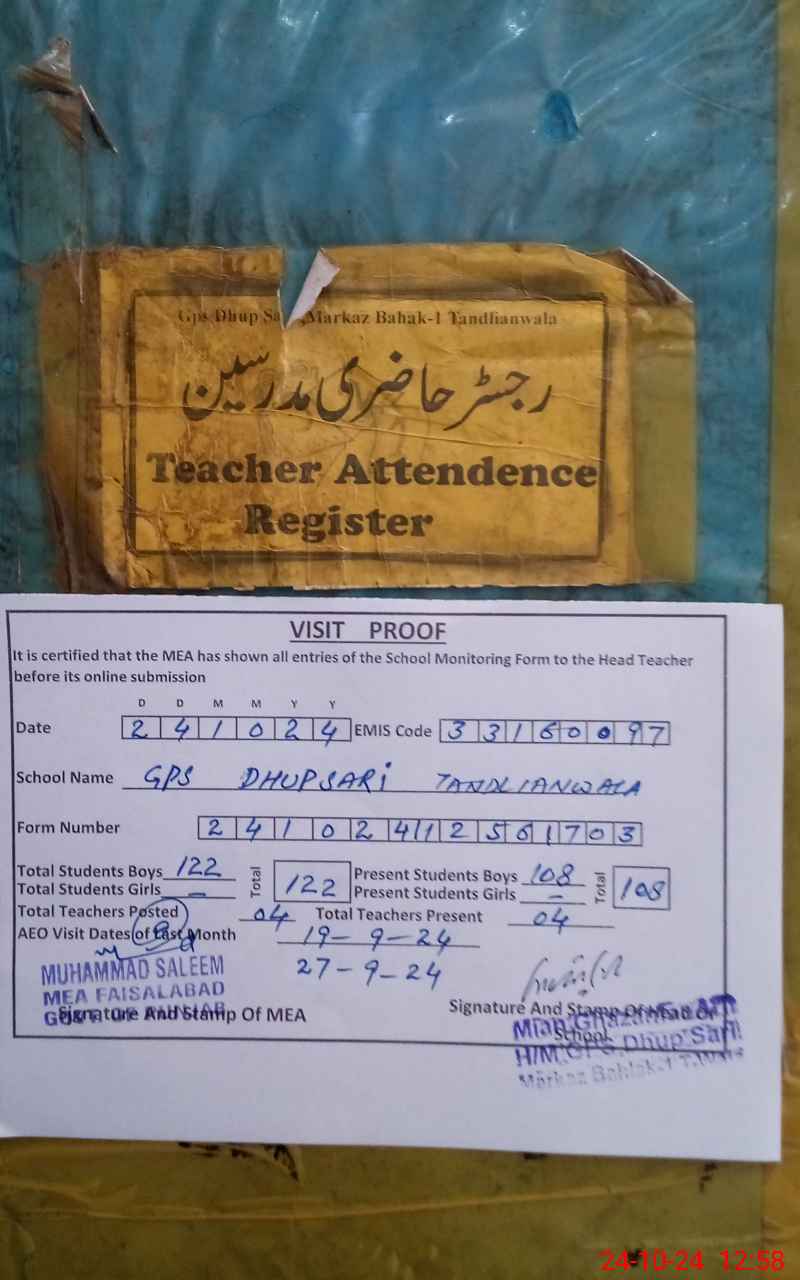 Gps Dhup Sa ,Markaz Bahak-1 Tandlianwala
رجسٹر حاضری مدرسین
Teacher Attendence
Register
VISIT PROOF
It is certified that the MEA has shown all entries of the School Monitoring Form to the Head Teacher
before its online submission
D D M M Y Y
Date 2 4 1 0 2 4 EMIS Code 3 3 1 6 0 0 9 7
School Name GPS DHUPSARI TANDLIANWALA
Form Number 2 4 1 0 2 4 1 2 5 6 1 7 0 3
Total Students Boys 122 Total 122 Present Students Boys 108 Total 108
Total Students Girls - Present Students Girls -
Total Teachers Posted 04 Total Teachers Present 04
AEO Visit Dates of Last Month 19-9-24
27-9-24
MUHAMMAD SALEEM
MEA FAISALABAD
GOVT OF PUNJAB
Signature And Stamp Of MEA
Signature And Stamp Of Head Of
School
Mian
H/M GPS Dhup Sari
Markaz Bahlak-1 T.Wala
24-10-24 12:58